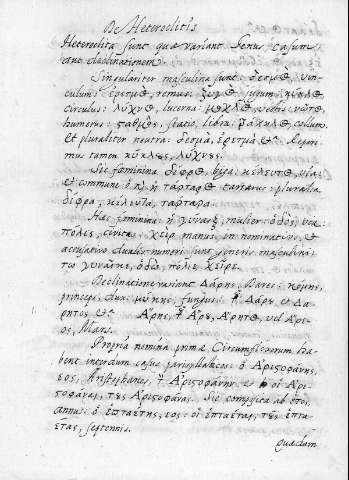 De Heteroclitis
Heteroclita sunt quæ variant Genus, casum
aut declinationem.
Singulariter masculina sunt: δεσμὸς, vin-
culum: ἐρετμὸς, remus: ζυγὸς, jugum, κύκλος
circulus: λύχνος, lucerna: μοχλὸς, vectis: νῶτος,
humerus: σταθμὸς, statio, libra: τράχηλος, collum.
et pluraliter neutra: δεσμὰ, ἐρετμὰ &c. Reperi-
mus tamen κύκλους, λύχνους.
Sic fœminina δίφρος, biga: κέλευθος, via:
et commune ὁ, ἡ τάρταρος tartarus: pluralia
δίφρα, κέλευθα, τάρταρα.
Hæc fœminina: ἡ γυναιξ, mulier: ὁδὸς, via:
πόλις, civitas: χεὶρ manus, in nominativo, et
accusativo dualis numeri sunt generis masculini:
τὼ γυναῖκε, ὁδὼ, πόλεε χεῖρε.
Declinatione variant Δάρης, Dares: κόμης,
princeps, dux: μύκης, fungus: τοῦ Δάρου et Δά-
ρητος &c. Ἄρης, τοῦ Ἄρου, Ἄρητος, vel Ἄρε-
ος, Mars.
Propria nomina primæ Circumflexorum ha-
bent interdum casus parisyllabicos: ὁ Ἀριστοφάνης,
εος, Aristophanes, τοῦ Ἀριστοφάνου et οἱ Ἀρι-
στοφάναι, τοὺς Ἀριστοφάνας. Sic composita ab ἔτος,
annus: ὁ ἑπταέτης, εος: οἱ ἑπταέται, τοὺς ἑπτα-
έτας, septennis.
Quædam